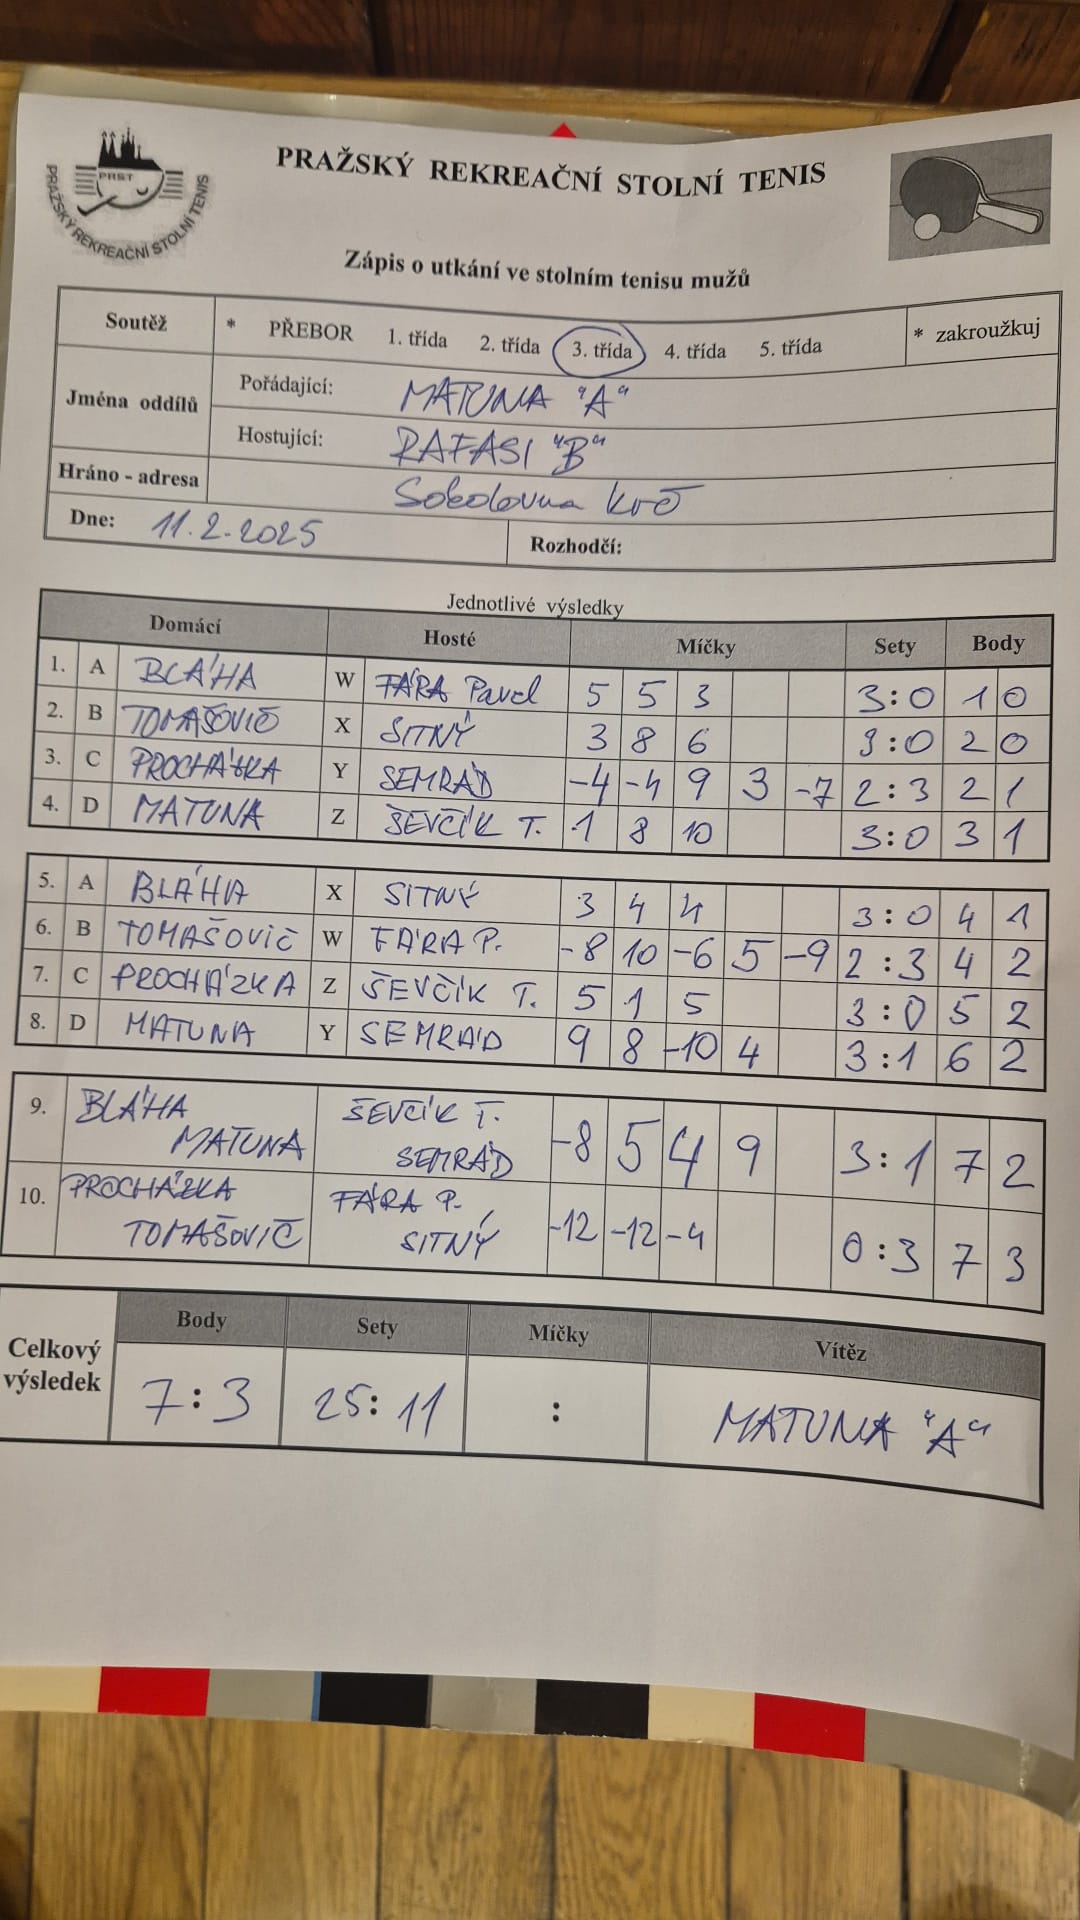 PRAŽSKÝ REKREAČNÍ STOLNÍ TENIS
PRST
PRAŽSKÝ REKREAČNÍ STOLNÍ TENIS
Zápis o utkání ve stolním tenisu mužů
Soutěž * PŘEBOR 1. třída 2. třída 3. třída 4. třída 5. třída * zakroužkuj
Jména oddílů
Pořádající: MATUNA "A"
Hostující: RAFASI "B"
Hráno - adresa Sokolovna Krč
Dne: 11.2.2025 Rozhodčí:
Jednotlivé výsledky
Domácí Hosté Míčky Sety Body
1. A BLÁHA W FÁRA Pavel 5 5 3 3:0 1 0
2. B TOMAŠOVIČ X SITNÝ 3 8 6 3:0 2 0
3. C PROCHÁZKA Y SEMRÁD -4 -4 9 3 -7 2:3 2 1
4. D MATUNA Z ŠEVČÍK T. 1 8 10 3:0 3 1
5. A BLÁHA X SITNÝ 3 4 4 3:0 4 1
6. B TOMAŠOVIČ W FÁRA P. -8 10 -6 5 -9 2:3 4 2
7. C PROCHÁZKA Z ŠEVČÍK T. 5 1 5 3:0 5 2
8. D MATUNA Y SEMRÁD 9 8 -10 4 3:1 6 2
9. BLÁHA MATUNA ŠEVČÍK T. SEMRÁD -8 5 4 9 3:1 7 2
10. PROCHÁZKA TOMAŠOVIČ FÁRA P. SITNÝ -12 -12 -4 0:3 7 3
Celkový výsledek
Body Sety Míčky Vítěz
7:3 25:11 : MATUNA "A"